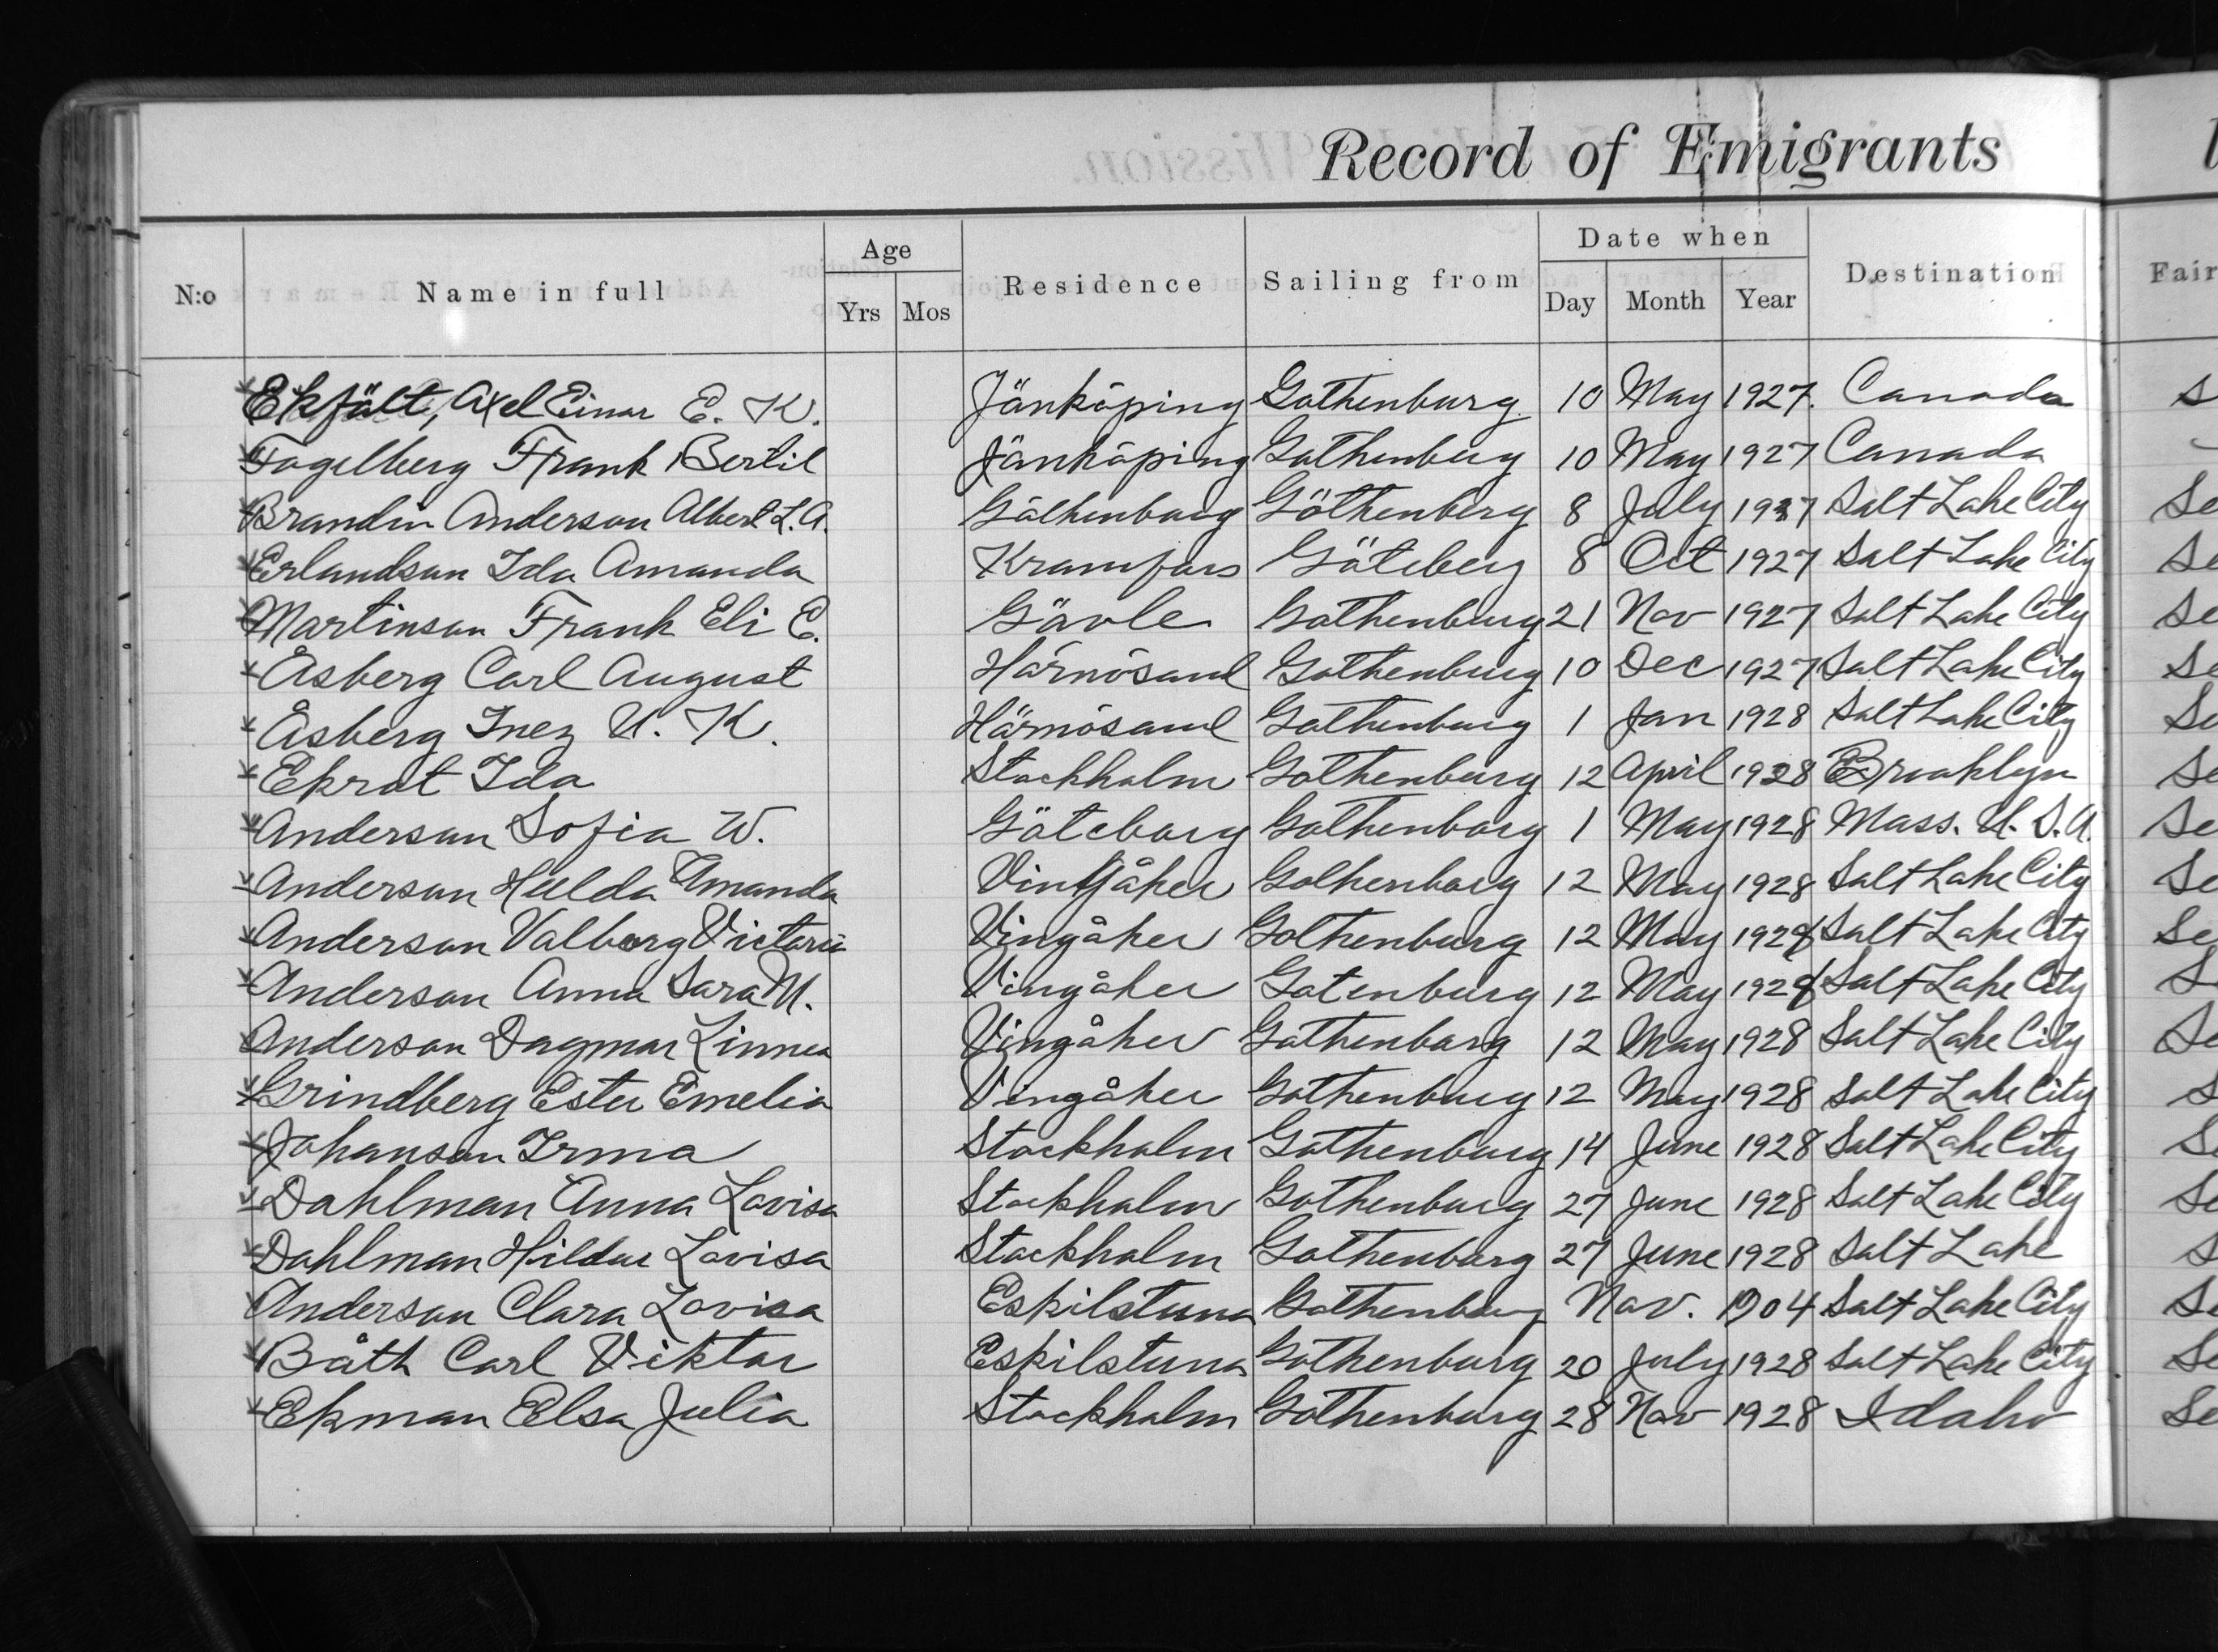 Record of Emigrants
N:o Name in full Age Yrs Mos Residence Sailing from Date when Day Month Year Destination Fair
Ekfält, Axel Einar E. K. Jönköping Gothenburg 10 May 1927. Canada
Fogelberg Frank Bertil Jönköping Gothenburg 10 May 1927 Canada
Brandin Anderson Albert L. A. Göthenborg Göthenberg 8 July 1927 Salt Lake City Se
Erlandson Ida Amanda Kramfors Göteberg 8 Oct 1927 Salt Lake City Se
Martinson Frank Eli E. Gävle Gothenburg 21 Nov 1927 Salt Lake City Se
Åsberg Carl August Härnösand Gothenburg 10 Dec 1927 Salt Lake City Se
Åsberg Inez U. K. Härnösand Gothenburg 1 Jan 1928 Salt Lake City Se
Ekrot Ida Stockholm Gothenburg 12 April 1928 Brooklyn Se
Anderson Sofia W. Göteborg Gothenborg 1 May 1928 Mass. U. S. A. Se
Anderson Hulda Amanda Vingåker Gothenborg 12 May 1928 Salt Lake City Se
Anderson Valborg Victoria Vingåker Gothenburg 12 May 1928 Salt Lake City Se
Anderson Anna Sara M. Vingåker Gotenburg 12 May 1928 Salt Lake City
Anderson Dagmar Linnea Vingåker Gothenborg 12 May 1928 Salt Lake City Se
Grindberg Ester Emelia Vingåker Gothenburg 12 May 1928 Salt Lake City
Johanson Irma Stockholm Gothenburg 14 June 1928 Salt Lake City Se
Dahlman Anna Lovisa Stockholm Gothenburg 27 June 1928 Salt Lake City Se
Dahlman Hildur Lovisa Stockholm Gothenburg 27 June 1928 Salt Lake
Anderson Clara Lovisa Eskilstuna Gothenburg Nov. 1904 Salt Lake City Se
Bååth Carl Viktor Eskilstuna Gothenburg 20 July 1928 Salt Lake City Se
Ekman Elsa Julia Stockholm Gothenburg 28 Nov 1928 Idaho Se